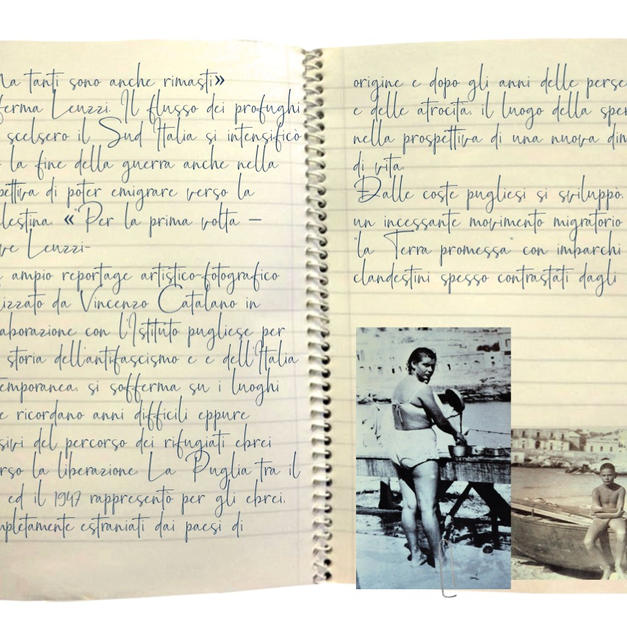 Ma tanti sono anche rimasti»
ferma Leuzzi. Il flusso dei profughi
scelsero il Sud Italia si intensificò
la fine della guerra anche nella
pettiva di poter emigrare verso la
lestina. «"Per la prima volta –
ve Leuzzi-
ampio reportage artistico-fotografico
izzato da Vincenzo Catalano in
aborazione con l'Istituto pugliese per
storia dell'antifascismo e e dell'Italia
emporanea, si sofferma su i luoghi
e ricordano anni difficili eppure
sivi del percorso dei rifugiati ebrei
erso la liberazione. La Puglia tra il
ed il 1947 rappresentò per gli ebrei,
mpletamente estraniati dai paesi di
origine e dopo gli anni delle perse
e delle atrocità, il luogo della sper
nella prospettiva di una nuova dim
di vita.
Dalle coste pugliesi si sviluppò,
un incessante movimento migratorio
"la Terra promessa" con imbarchi
clandestini spesso contrastati dagli